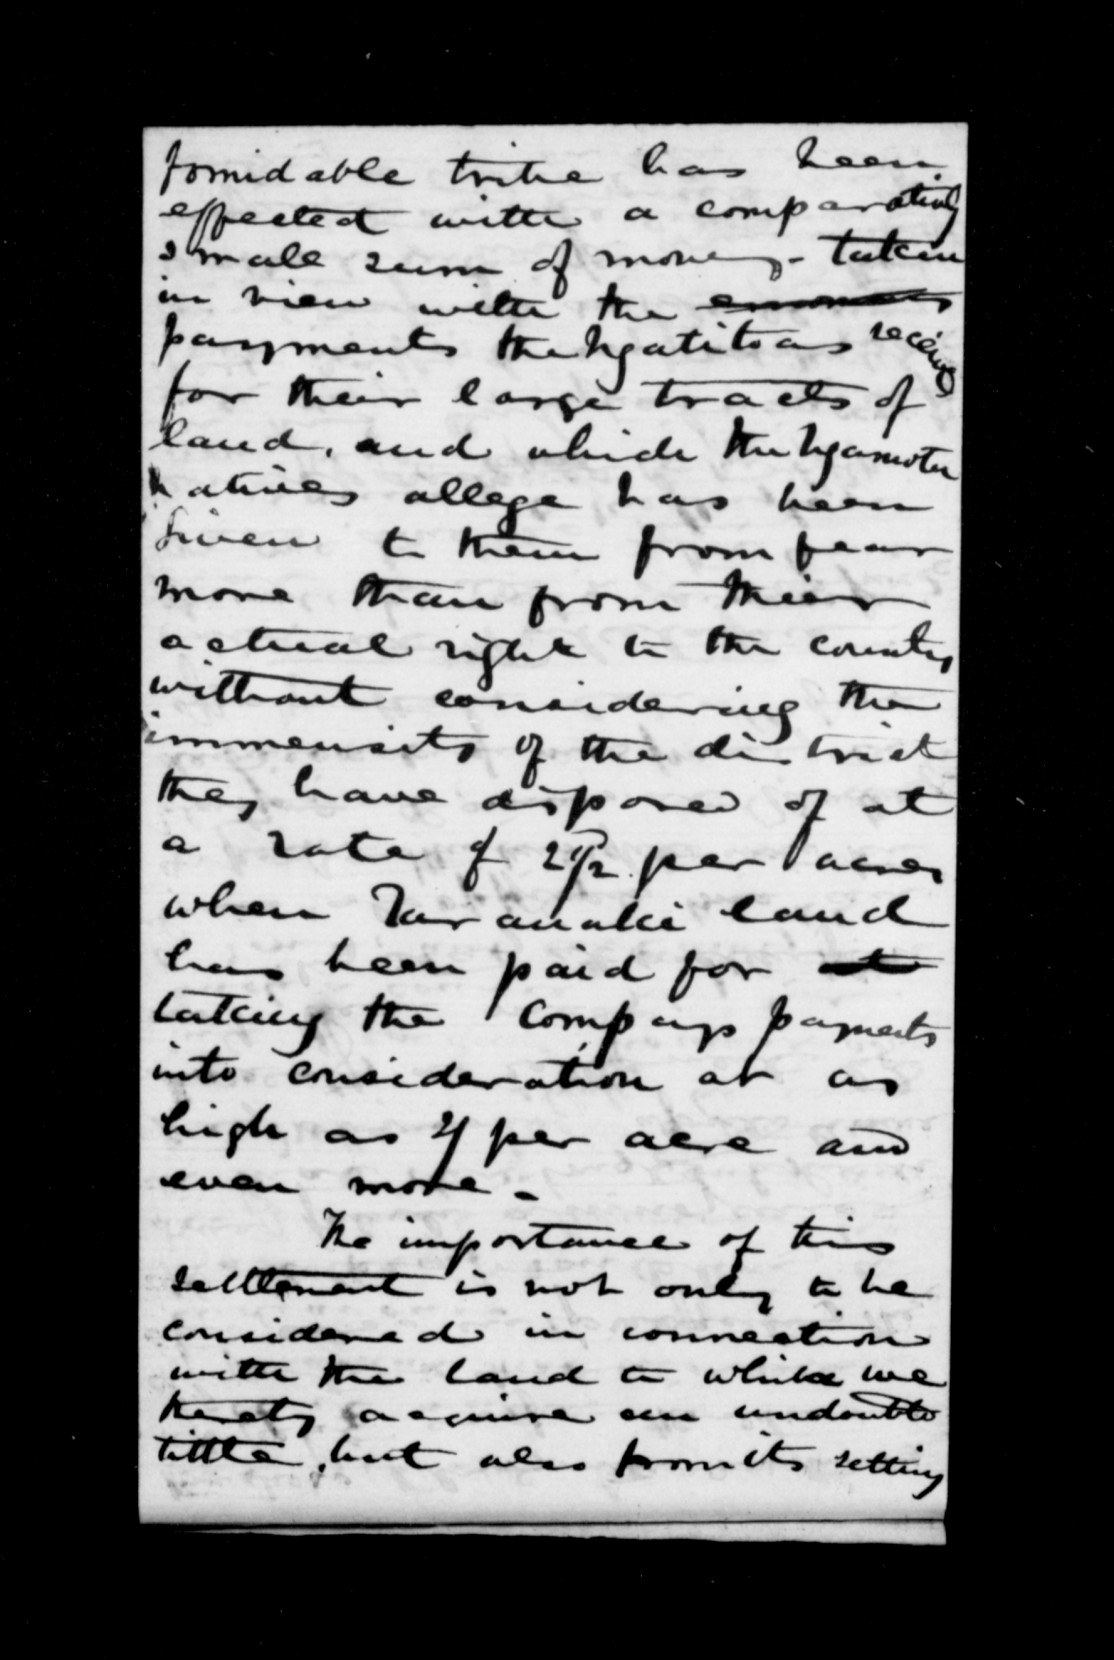 formidable tribe has been
effected with a comparatively
small sum of money - taken
in view with the enormous
payments the Ngatitoas receive
for their large tracts of
land, and which the Ngamotu
natives allege has been
given to them from fear
more than from their
actual right to the country
without considering the
immensity of the district
they have disposed of at
a rate of per acre
when Taranaki land
has been paid for at
taking the Compays payments
into consideration at as
high as 2/ per acre and
even more -
The importance of this
settlement is not only to be
considered in connection
with the land to which we
thereby acquire an undoubted
tittle, but also from its setting